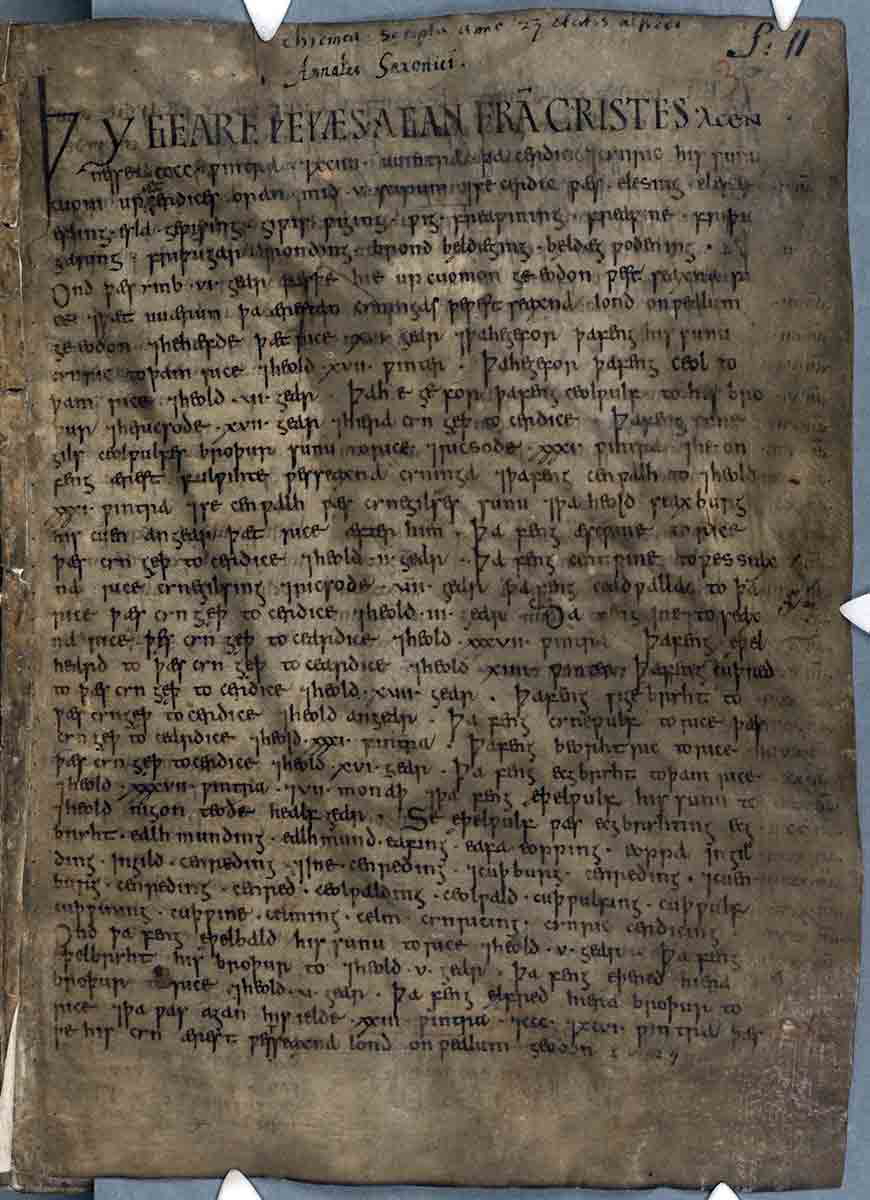 chiemea scripta anno 23 etatis alfredi
S: 11
Annales Saxonici.
ÞY GEARE ÞE ǷÆS AGAN FRÃ CRISTES acen
nesse .cccc. ƿintra ⁊ xciiii. uuintra. þa cerdic ⁊ cynric his sunu
cuom up æt cerdices oran mid .v. scipum. ⁊ se cerdic ƿæs. elesing. elesa
esling. esla. geƿising. giƿis. ƿiging. ƿig. freaƿining. freaƿine. friþu
garing. friþugar. bronding. brond beldæging. beldæg ƿodening.
Ond þæs ymb .vi. gear þæs þe hie up cuomon ge eodon ƿest seaxna ri
ce. ⁊ þæt uuærun þa ærestan cyningas þe ƿest seaxna lond on ƿealum
ge eodon. ⁊ he hæfde þæt rice .xvi. gear ⁊ þa he gefor þa feng his sunu
cynric to þam rice ⁊ heold .xvii. ƿinter. Þa he gefor þa feng ceol to
þam rice ⁊ heold .vii. gear. Þa he gefor þa feng ceolƿulf to his bro
þur ⁊ he ricsode .xvii. gear ⁊ hiera cyn gęþ to cerdice. Þa feng cyne
gils ceolƿulfes broþur sunu to rice ⁊ ricsode .xxxi. ƿintra ⁊ he on
feng ærest fulƿihte ƿesseaxna cyninga ⁊ þa feng cenƿalh to ⁊ heold
.xxxi. ƿintra ⁊ se cenƿalh ƿæs cynegilses sunu ⁊ þa heold seaxburg
his cuen an gear þæt rice æfter him. Þa feng æscƿine to rice
þæs cyn gęþ to cerdice ⁊ heold .ii. gear. Þa feng centƿine to ƿes seax
na rice cynegilsing ⁊ ricsode .vii. gear. Þa feng ceadƿalla to þã
rice þæs cyn gęþ to cerdice ⁊ heold .iii. gear. Ða feng ine to seax
na rice þæs cyn gęþ to cerdice ⁊ heold .xxxvii. ƿintra. Þa feng æþel
heard to þæs cyn gęþ to cerdice ⁊ heold xiiii. ƿinter. Þa feng cuþred
to þæs cyn gęþ to cerdice ⁊ heold .xvii. gear. Þa feng sigebryht to
þæs cyn gęþ to cerdice ⁊ heold an gear. Þa feng cyneƿulf to rice þæs
cyn gęþ to cerdice ⁊ heold .xxxi. ƿintra. Þa feng beorhtric to rice
þæs cyn gęþ to cerdice ⁊ heold .xvi. gear. Þa feng ecgbryht to þam rice
⁊ heold .xxxvii. ƿintra. ⁊ vii. monaþ ⁊ þa feng eþelƿulf his sunu to
⁊ heold nigon teoðe healf gear. Se eþelƿulf ƿæs ecgbryhting ecg
bryht. ealhmunding. ealhmund. eafing. eafa eopping. eoppa ingil
ding. ingild. cenreding. ⁊ ine cenreding. ⁊ cuþburg. cenreding. ⁊ cuen
burg. cenreding. cenred. ceolƿalding. ceolƿald. cuþƿulfing. cuþƿulf
cuþƿining. cuþƿine. celming. celm. cynricing. cynric cerdicing
Ond þa feng eþelbald his sunu to rice ⁊ heold .v. gear. Þa feng
eþelbryht his broþur to ⁊ heold .v. gear. Þa feng eþered hiera
broþur to rice ⁊ heold .v. gear. Þa feng elfred hiera broþur to
rice ⁊ þa ƿæs agan his ielde .xxiii. ƿintra. ⁊ ccc. ⁊ xcvi. ƿintra þæs
þe his cyn ærest ƿesseaxna lond on ƿealum geodon